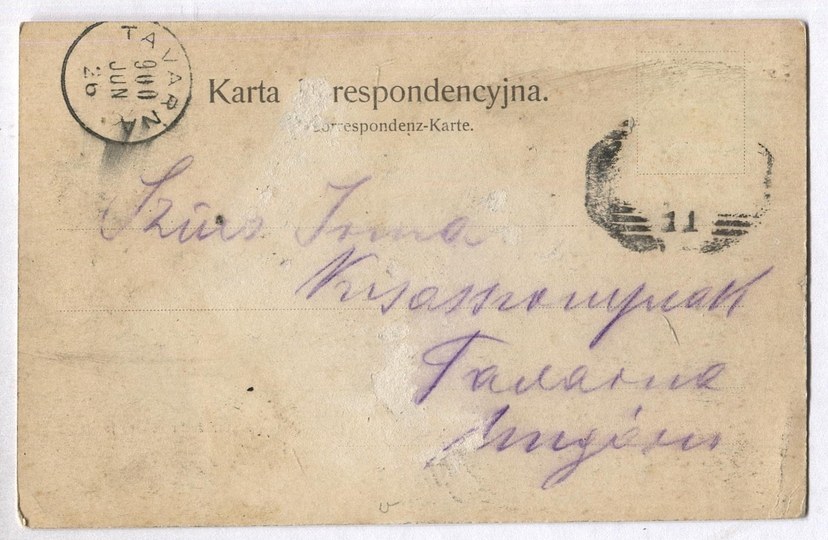 TAVARNA
900
JUN
26
Karta respondencyjna.
orrespondenz-Karte.
11
Szűcs Irma
Kisasszonynak
Tavarna
Ungárn